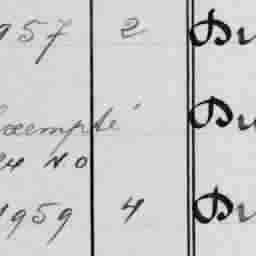 1957 2 Du
Exempté Du
N.O
1959 4 Du